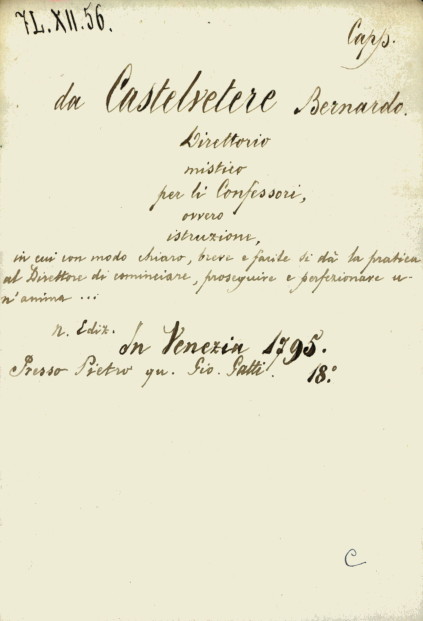 7L.XII.56.
Capp.
da Castelvetere Bernardo.
Direttorio
mistico
per li Confessori,
ovvero
istruzione,
in cui con modo chiaro, breve e facile si dà la pratica
al Direttore di cominciare, proseguire e perfezionare u-
n'anima ...
n. Ediz.
In Venezia 1795.
Presso Pietro qu. Gio. Gatti. 18.°
C